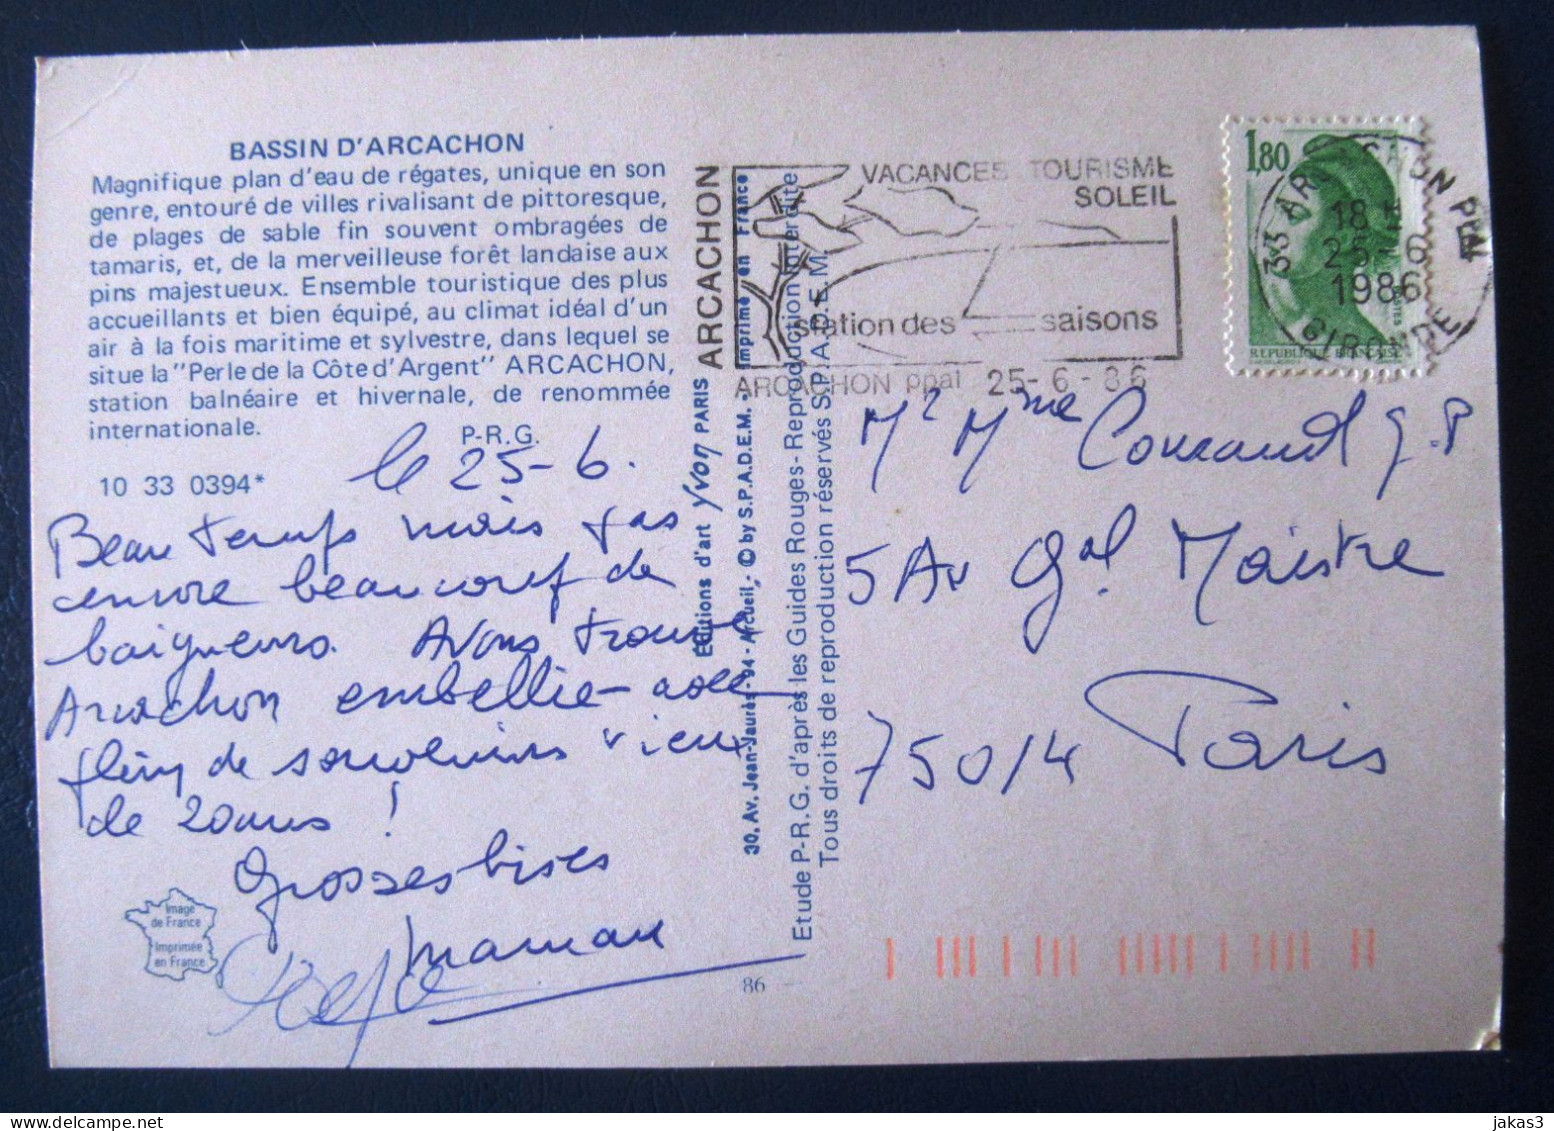 BASSIN D'ARCACHON
Magnifique plan d'eau de régates, unique en son
genre, entouré de villes rivalisant de pittoresque,
de plages de sable fin souvent ombragées de
tamaris, et, de la merveilleuse forêt landaise aux
pins majestueux. Ensemble touristique des plus
accueillants et bien équipé, au climat idéal d'un
air à la fois maritime et sylvestre, dans lequel se
situe la "Perle de la Côte d'Argent" ARCACHON,
station balnéaire et hivernale, de renommée
internationale.
P-R.G.
10 33 0394*
le 25-6.
Beau temps mais pas
encore beaucoup de
baigneurs. Avons trouvé
Arcachon embellie - avec
plein de souvenirs vieux
de 20 ans !
Grosses bises
maman
Image
de France
Imprimée
en France
86
ARCACHON
Editions d'art yvon PARIS
imprimé en France
30, Av. Jean-Jaurès - 94 - Arcueil - © by S.P.A.D.E.M.
Etude P-R.G. d'après les Guides Rouges - Reproduction interdite
Tous droits de reproduction réservés S.P.A.D.E.M.
VACANCES TOURISME
SOLEIL
station des saisons
ARCACHON ppal 25-6-86
1,80
REPUBLIQUE FRANÇAISE
POSTES
33 ARCACHON PPAL
18 H
25-6
1986
GIRONDE
Mr Mme J.P
5 Av Gal Maistre
75014 Paris
jakas3